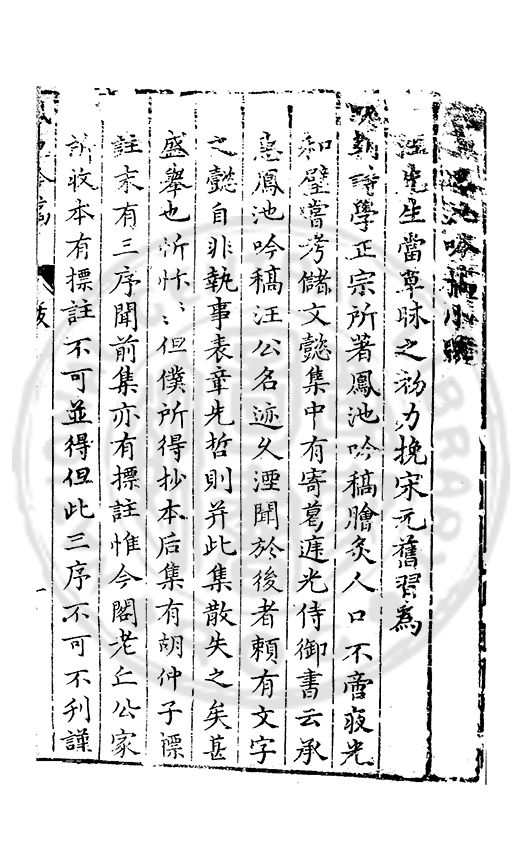 池吟稿小
汪先生當草昧之初力挽宋元舊習爲
朝詩學正宗所著鳳池吟稿膾炙人口不啻夜光
和璧嘗考儲文懿集中有寄葛遲光侍御書云承
惠鳳池吟稿汪公名迹久湮聞於後者頼有文字
之懿自非執事表章先哲則并此集散失之矣甚
盛舉也忻忭忭但僕所得抄本后集有胡仲子標
註末有三序聞前集亦有標註惟今閣老丘公家
収本有標註不可並得但此三序不可不刋謹
吟稿 跋 一